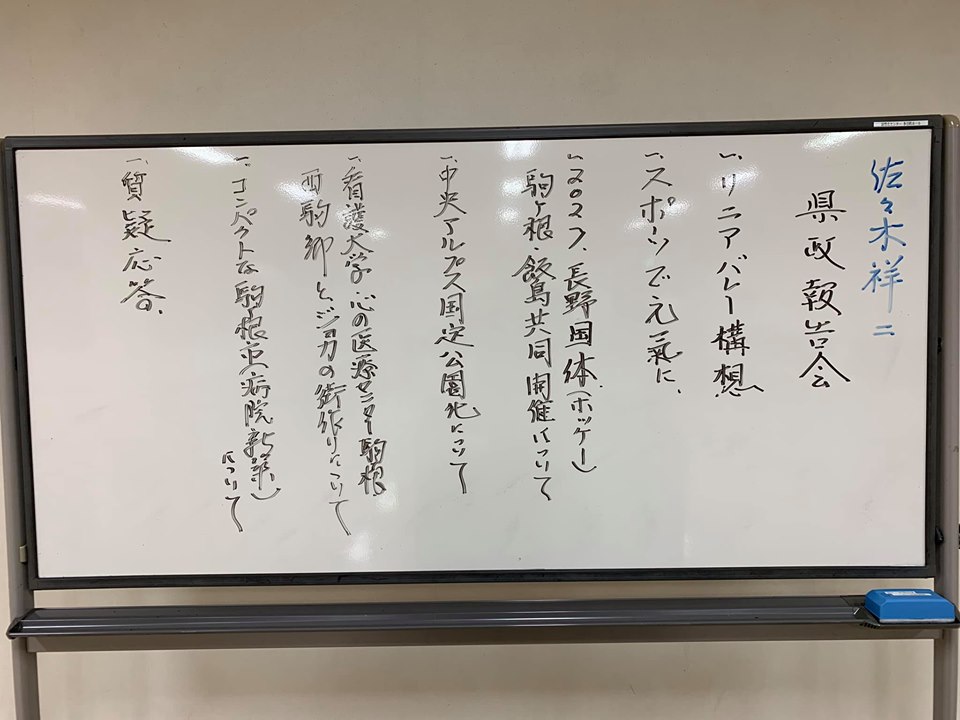 佐々木祥二
県政報告会
一、リニアバレー構想
一、スポーツで元氣に、
一、2027、長野国体(ホッケー)
駒ヶ根・飯島共同開催について
一、中央アルプス国定公園化について
一、看護大学・心の医療センター駒ヶ根
西駒郷と、
の街作りについて
一、コンパクトな駒ヶ根市(病院新築)
について
一、質疑応答、